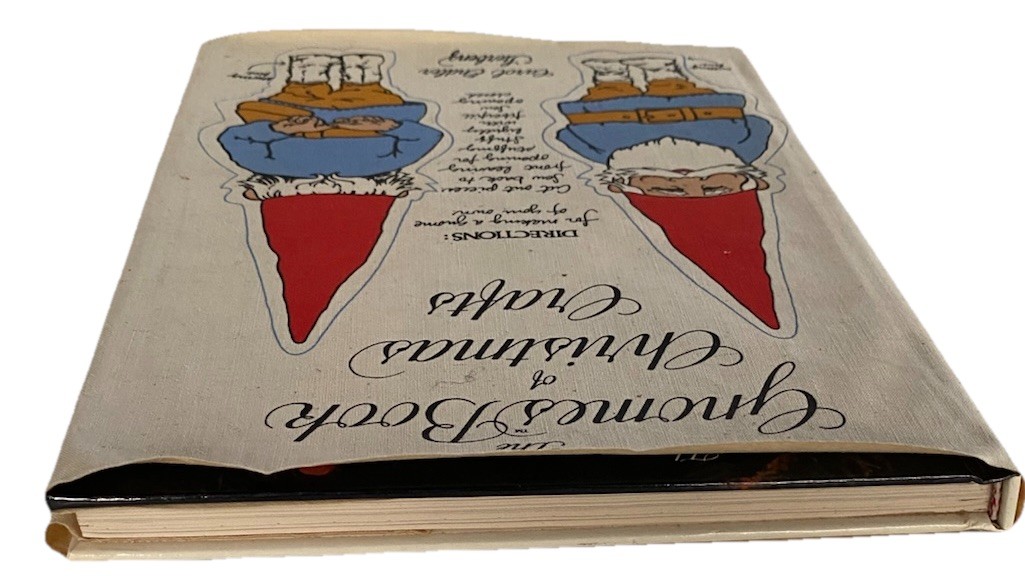 The
Gnomes™ Book
of
Christmas
Crafts
DIRECTIONS:
for making a gnome
of your own
Cut out pieces
Sew back to
front leaving
opening for
stuffing
Stuff
lightly
with
fiberfill
Sew
opening
closed
Carol Endler
Sterbenz